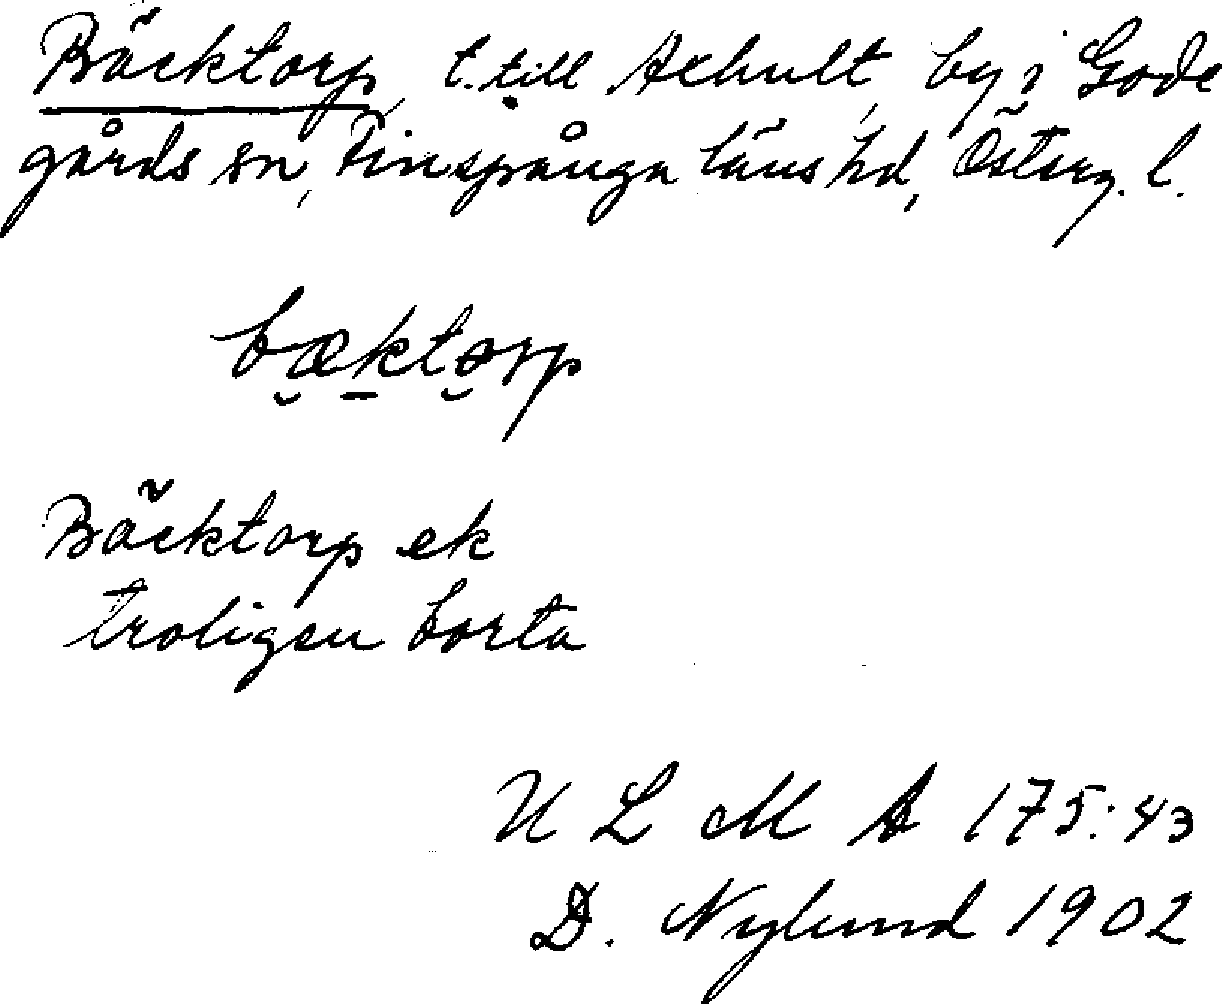 Bäcktorp, t. till Axhult, by i Gode
gårds sn, Finspånga läns hd, Österg. l.
bæktorp
Bäcktorp ek
troligen borta
U L M A 175:43
D. Nylund 1902